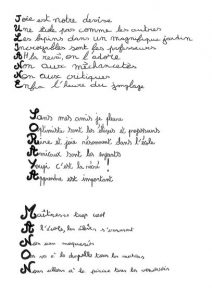 Joie est notre devise
Une école pas comme les autres
Les lapins dans un magnifique jardin
Incroyables sont les professeurs
Ah la, on l'adore
Non aux méchancetés
Non aux critiques
Enfin l'heure du
Sans mes amis je pleure
Optimiste sont les élèves et professeurs
Rire et joie résonnent dans l'école
Amicaux sont les enfants
Youpi c'est la récré !
Apprendre est important
Maîtresse trop cool
A l'école, les élèves s'amusent
Non aux moqueries
On va à la chapelle tous les matins
Nous allons à la piscine tous les vendredis